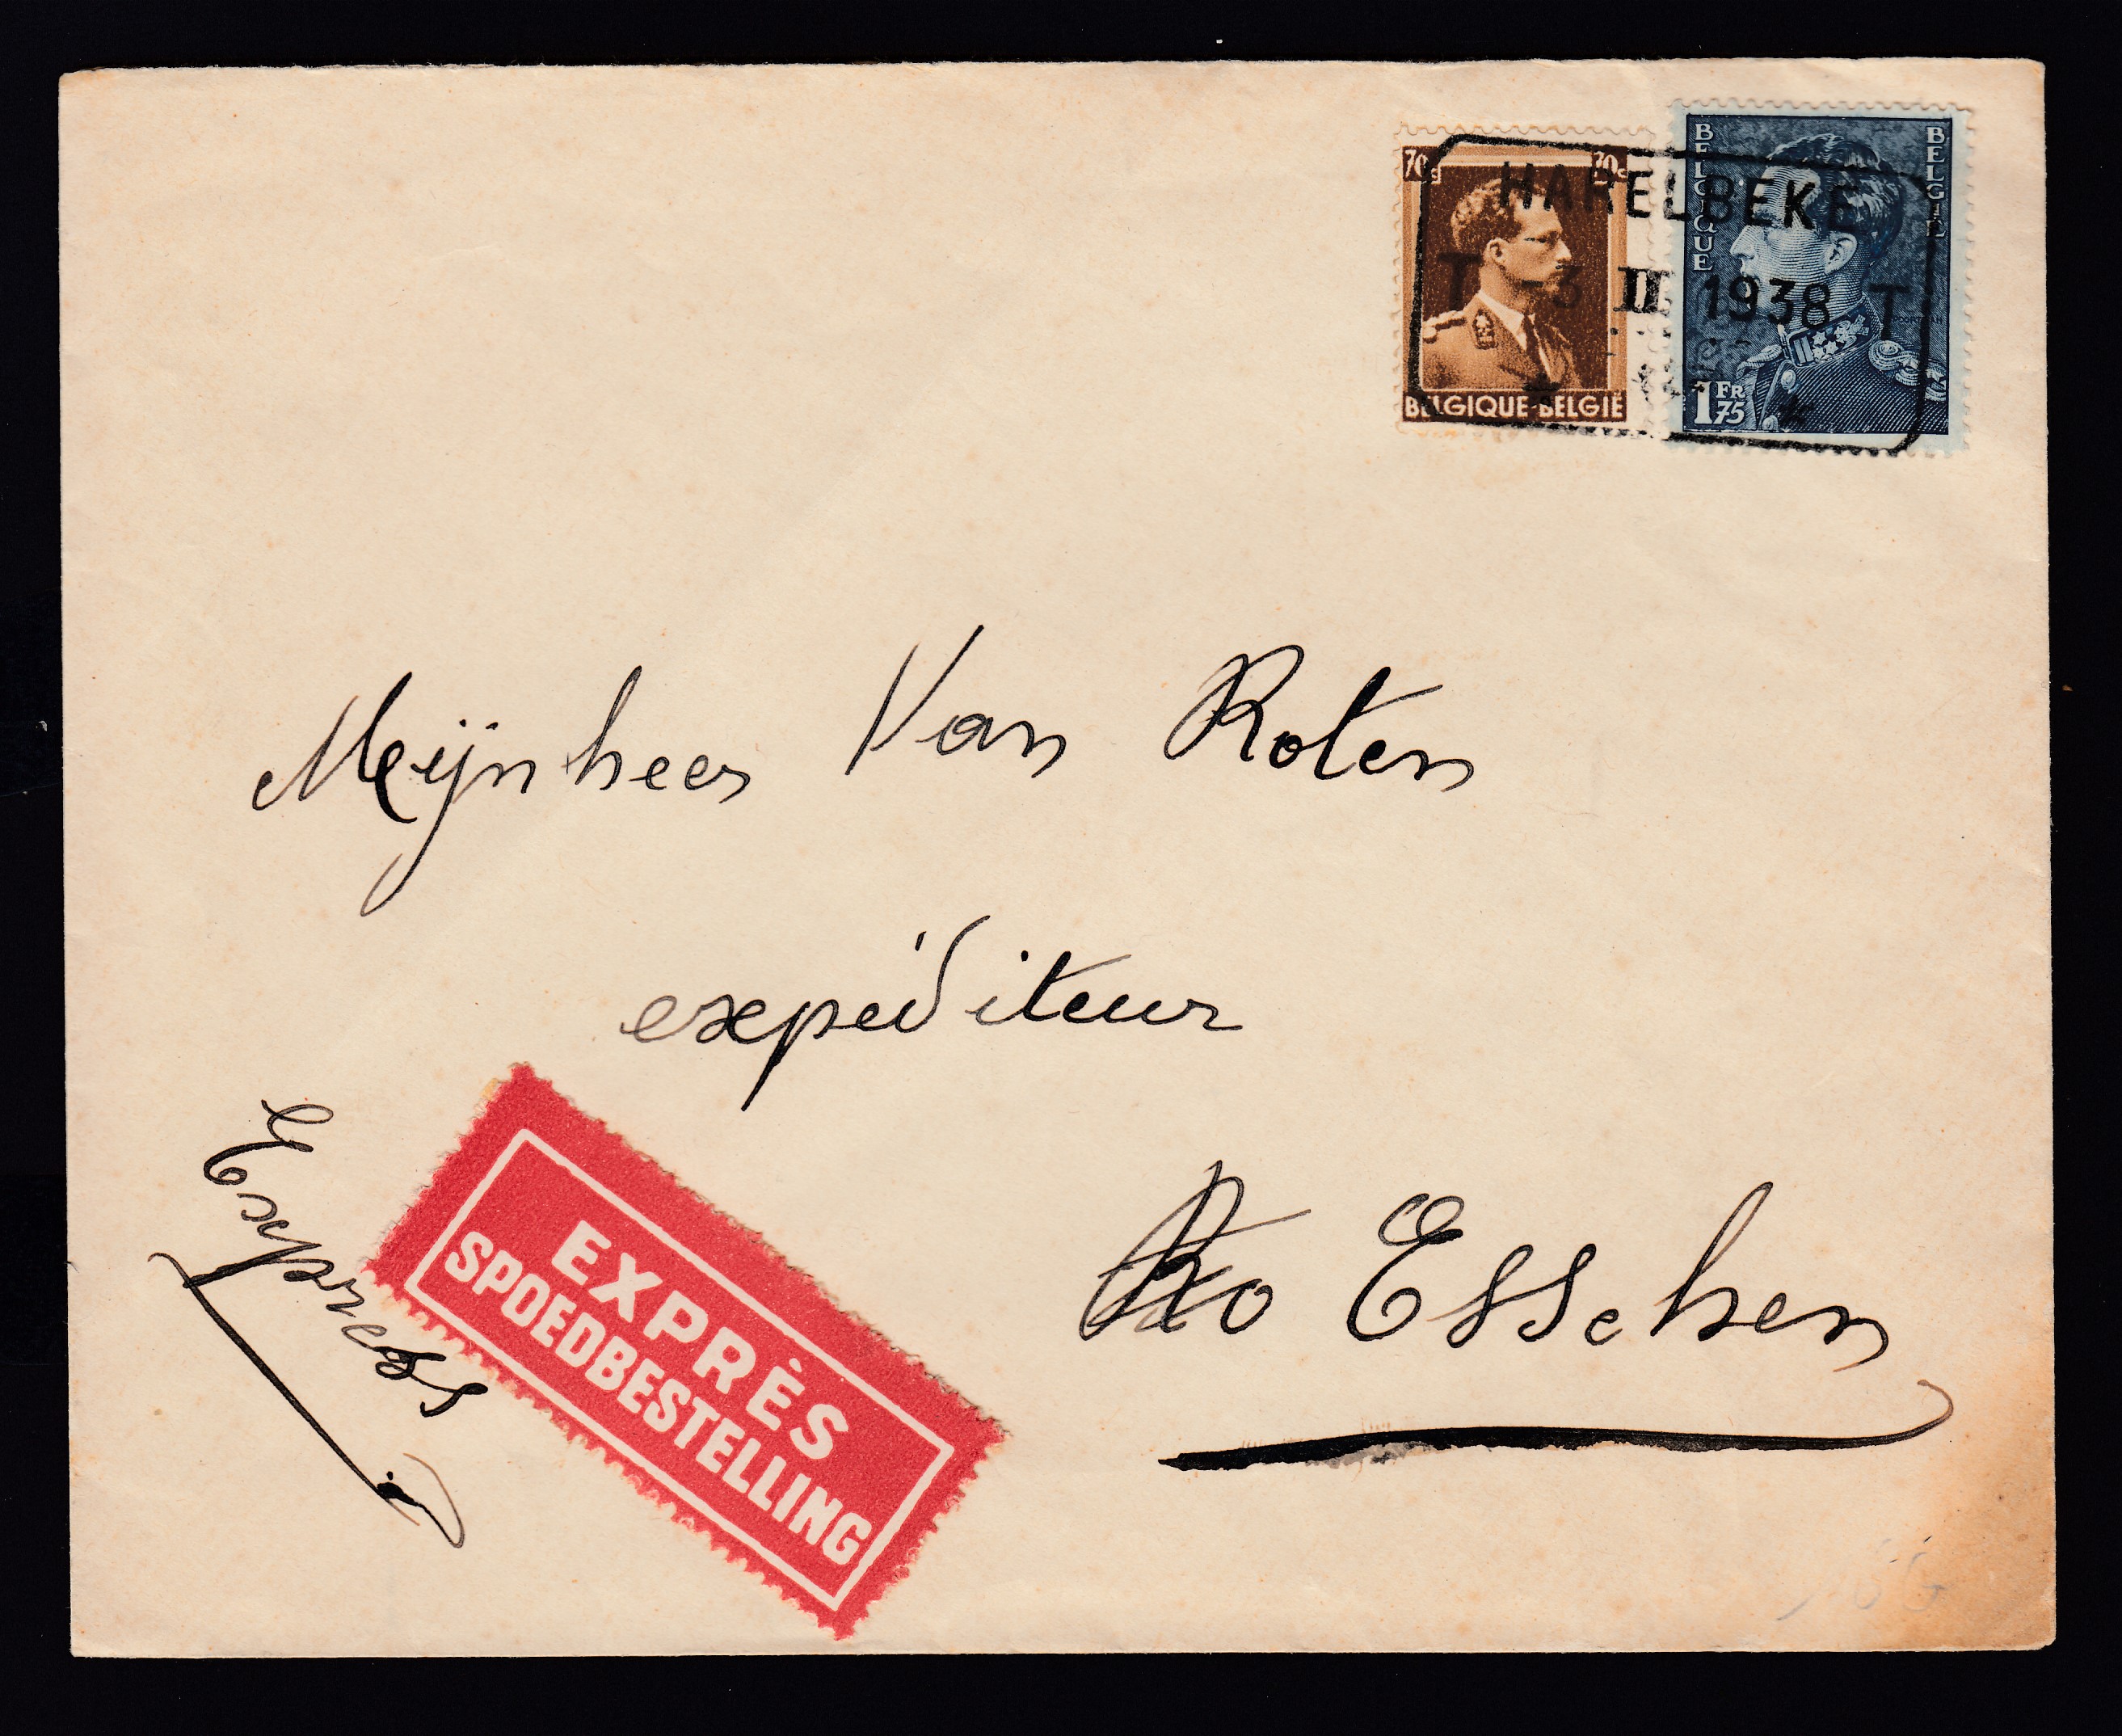 70c 70c
BELGIQUE-BELGIË
BELGIQUE BELGIË
1FR75
HARELBEKE
T -3 II 1938 T
Meijnheer Van Roten
expéditeur
Esschen
Express
EXPRÈS
SPOEDBESTELLING